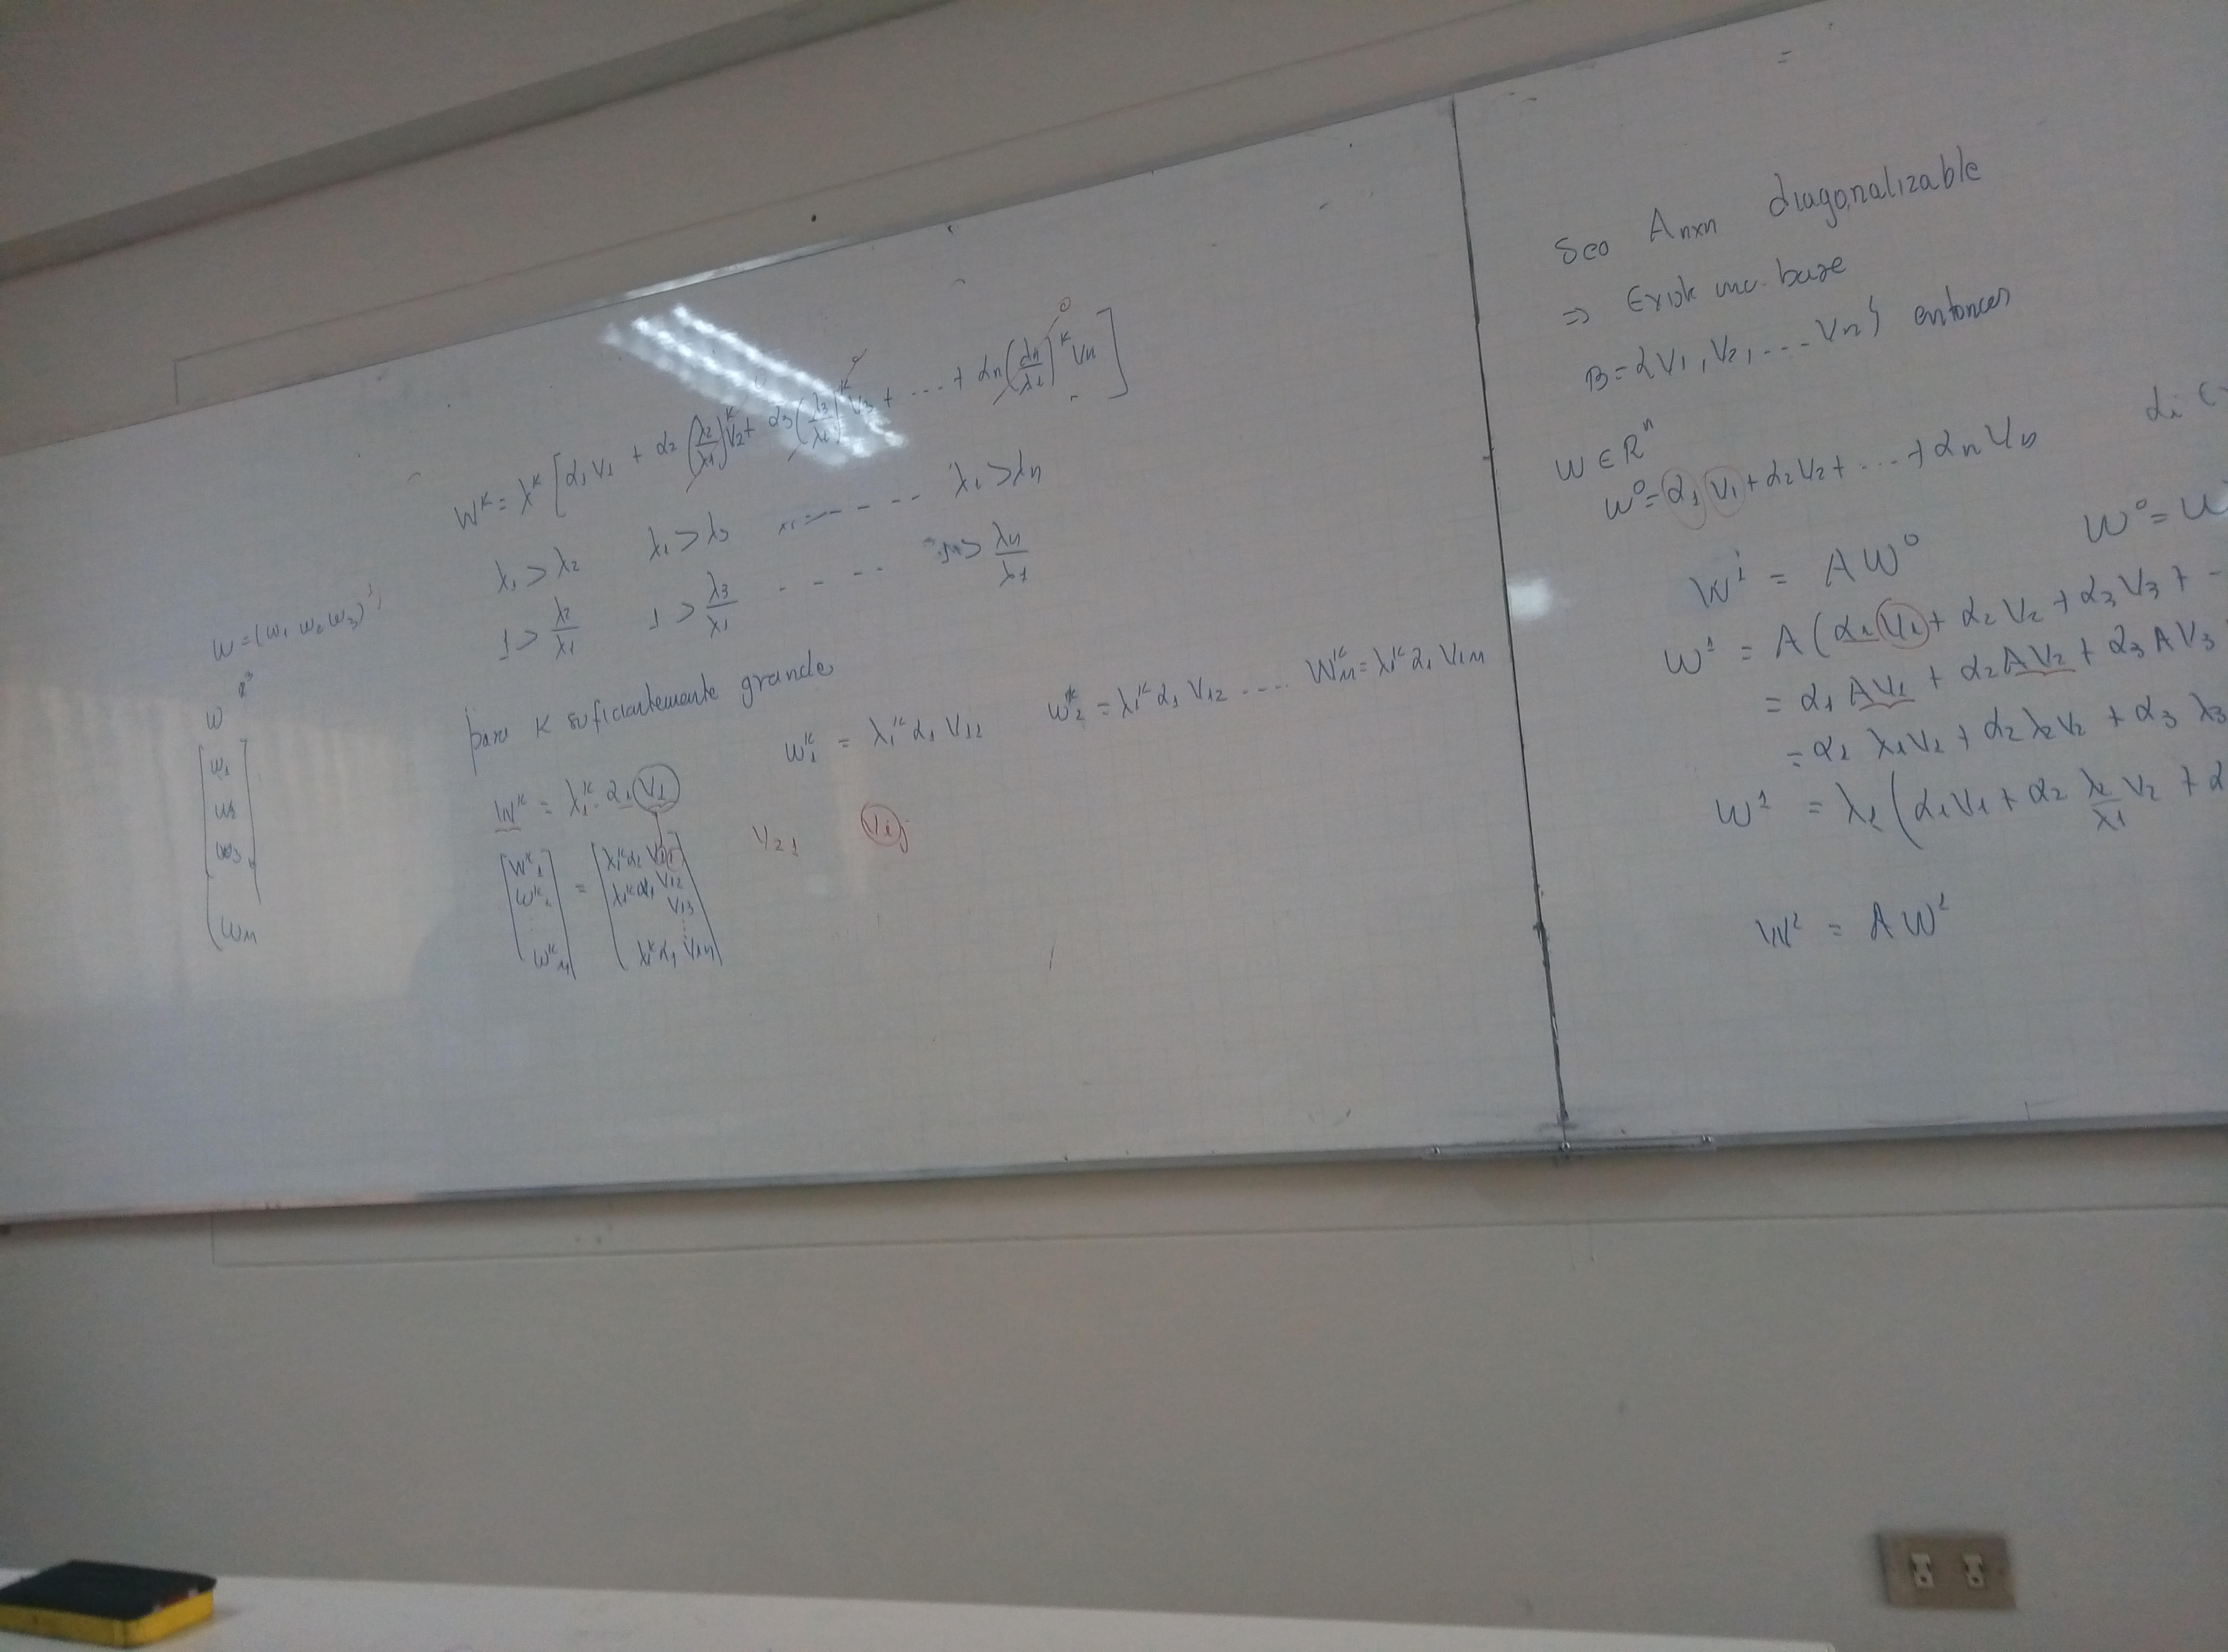 W = (w₁ w₂ w₃)
W
[w₁
w₂
w₃
wₙ
Wᴷ = λᴷ [α₁V₁ + α₂(λ₂/λ₁)ᴷV₂ + α₃(λ₃/λ₁)ᴷV₃ + ... + αₙ(λₙ/λ₁)ᴷVₙ]
λ₁ > λ₂ λ₁ > λ₃ ---- λ₁ > λₙ
1 > λ₂/λ₁ 1 > λ₃/λ₁ ---- > λₙ/λ₁
para K suficientemente grande
Wᴷ = λ₁ᴷ α₁ V₁
W₁ᴷ = λ₁ᴷ α₁ V₁₁ W₂ᴷ = λ₁ᴷ α₁ V₁₂ .... Wₙᴷ = λ₁ᴷ α₁ V₁ₙ
[Wᴷ₁ = [λ₁ᴷ α₁ V₁₁
Wᴷ₂ λ₁ᴷ α₁ V₁₂
V₁₃
Wᴷₙ] λ₁ᴷ α₁ V₁ₙ]
V₂₁ Vᵢⱼ
Sea Aₙₓₙ diagonalizable
⇒ Existe una base
B = {V₁, V₂, .... Vₙ} entonces
W ∈ Rⁿ
W⁰ = α₁V₁ + α₂V₂ + ... + αₙVₙ αᵢ ∈
W¹ = AW⁰ W⁰ = W
W¹ = A(α₁V₁ + α₂V₂ + α₃V₃ +
= α₁AV₁ + α₂AV₂ + α₃AV₃
= α₁λ₁V₁ + α₂λ₂V₂ + α₃λ₃
W¹ = λ₁(α₁V₁ + α₂ λ₂/λ₁ V₂ + α
W² = AW¹